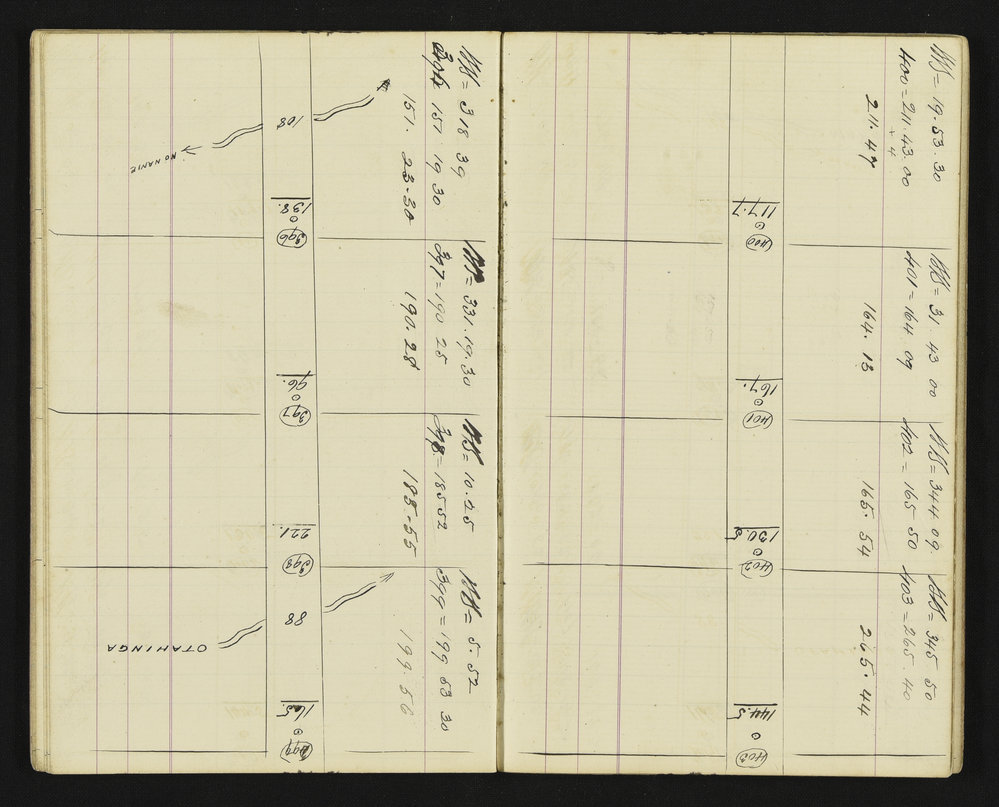 318 39
151 19 30
151. 23.30
108
NO NAME
138.
0
396
= 331.19.30
397 = 190 25
190.28
96.
0
397
= 10.25
398 = 185 52
185.55
221.
0
398
= 5.52
399 = 199 53 30
199.56
88
OTAHINGA
165.
0
399
= 19.53.30
400 = 211.43.00
+ 4
211.47
117.7
0
400
= 31.43 00
401 = 164 09
164.13
167.
0
401
= 344 09
402 = 165 50
165.54
130.5
0
402
= 345 50
403 = 265.40
265.44
144.5
0
403